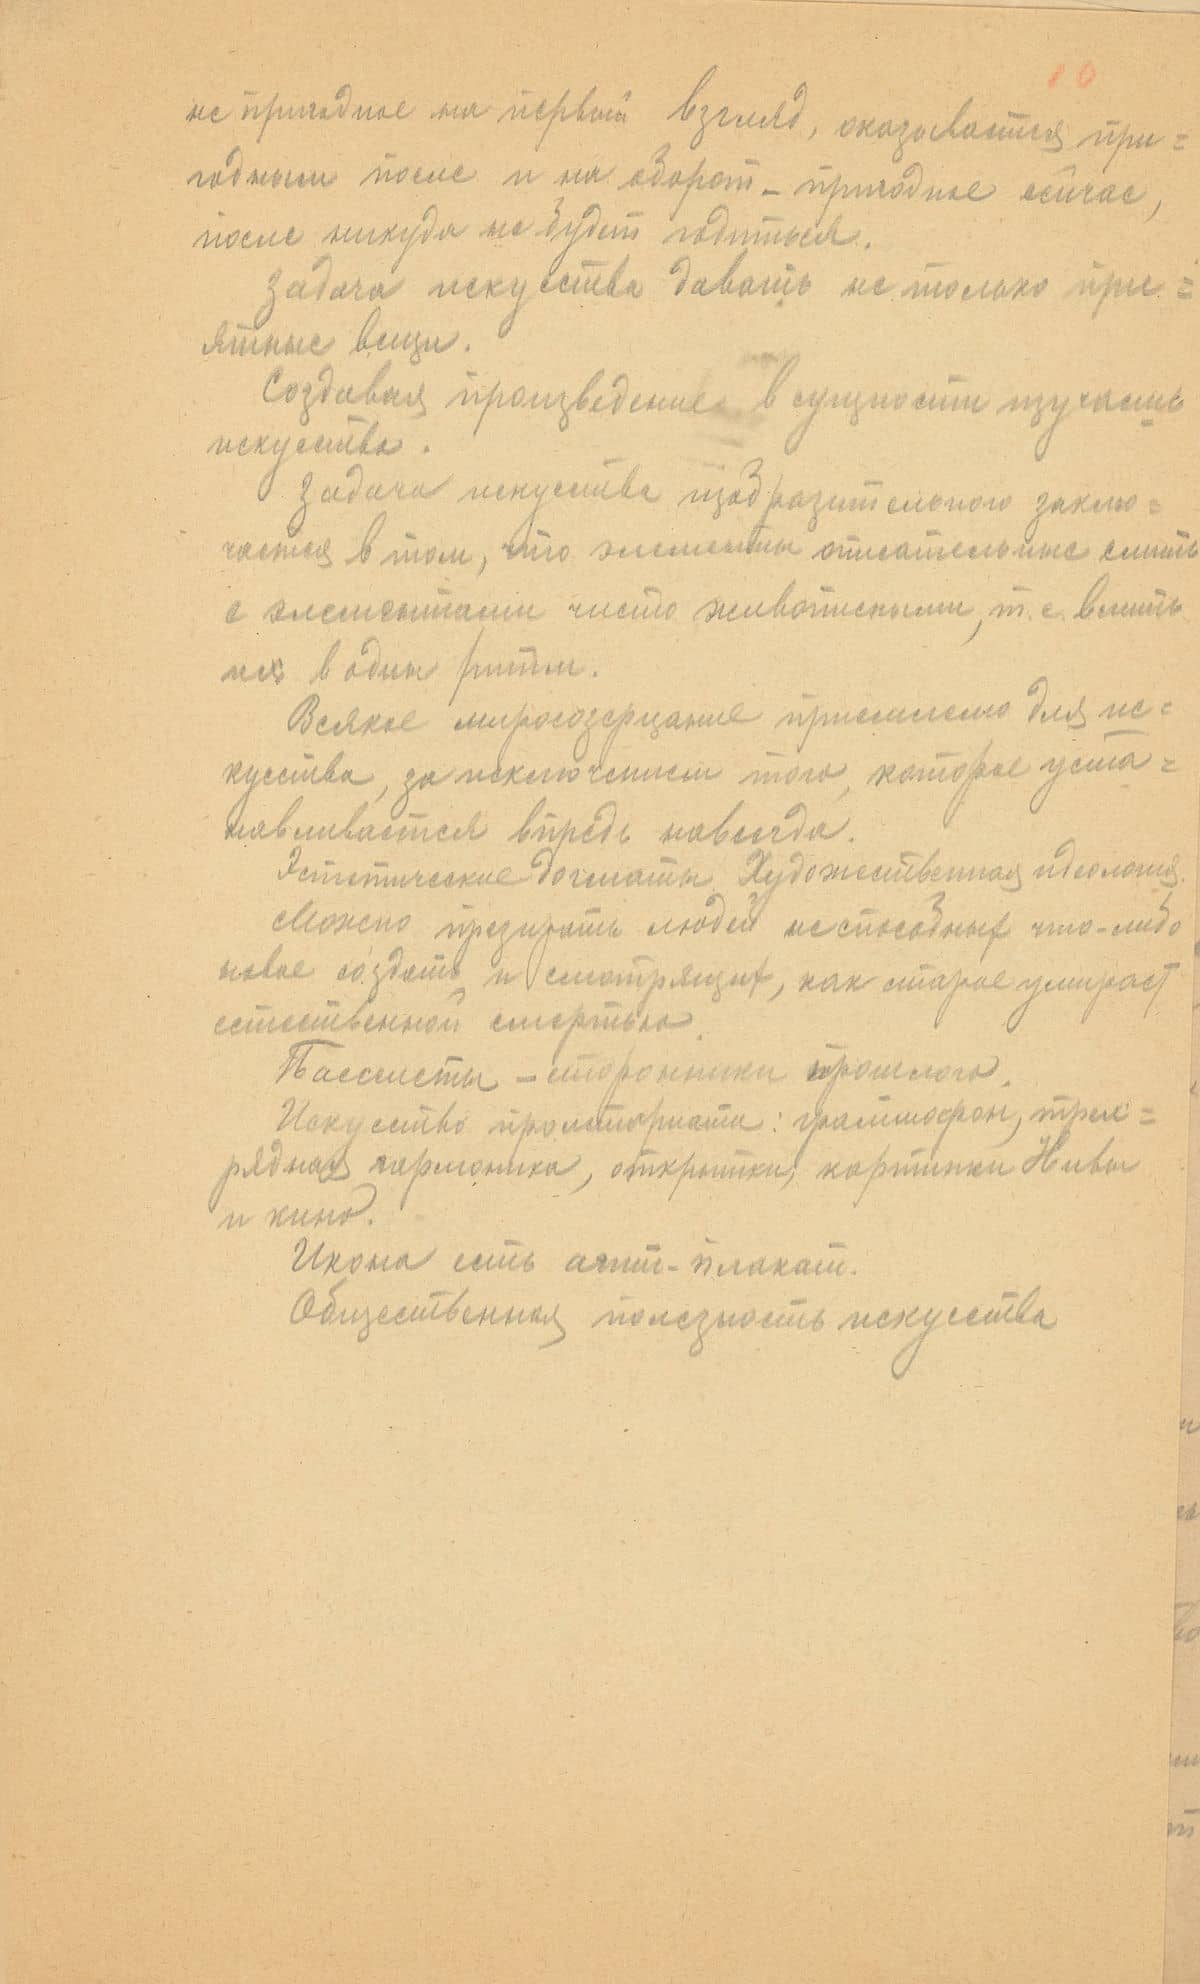 10
не пригодное на первый взгляд, оказывается при=
годным после и на оборот – пригодное сейчас,
после никуда не будет годиться.
Задача искусства давать не только при=
ятные вещи.
Создавая произведение в сущности изучаешь
искусство.
Задача искусства изобразительного заклю=
чается в том, что элементы описательные слить
с элементами чисто живописными, т.е. влить
их в один ритм.
Всякое миросозерцание приемлемо для ис=
кусства, за исключением того, которое уста=
навливается впредь навсегда.
Эстетические догматы. Художественная идеология.
Можно презирать людей неспособных что-либо
новое создать и смотрящих, как старое умирает
естественной смертью.
Пассеисты – сторонники прошлого.
Искусство пролетариата: граммофон, трех=
рядная гармоника, открытки, картинки Нивы
и кино.
Икона есть агит-плакат.
Общественная полезность искусства